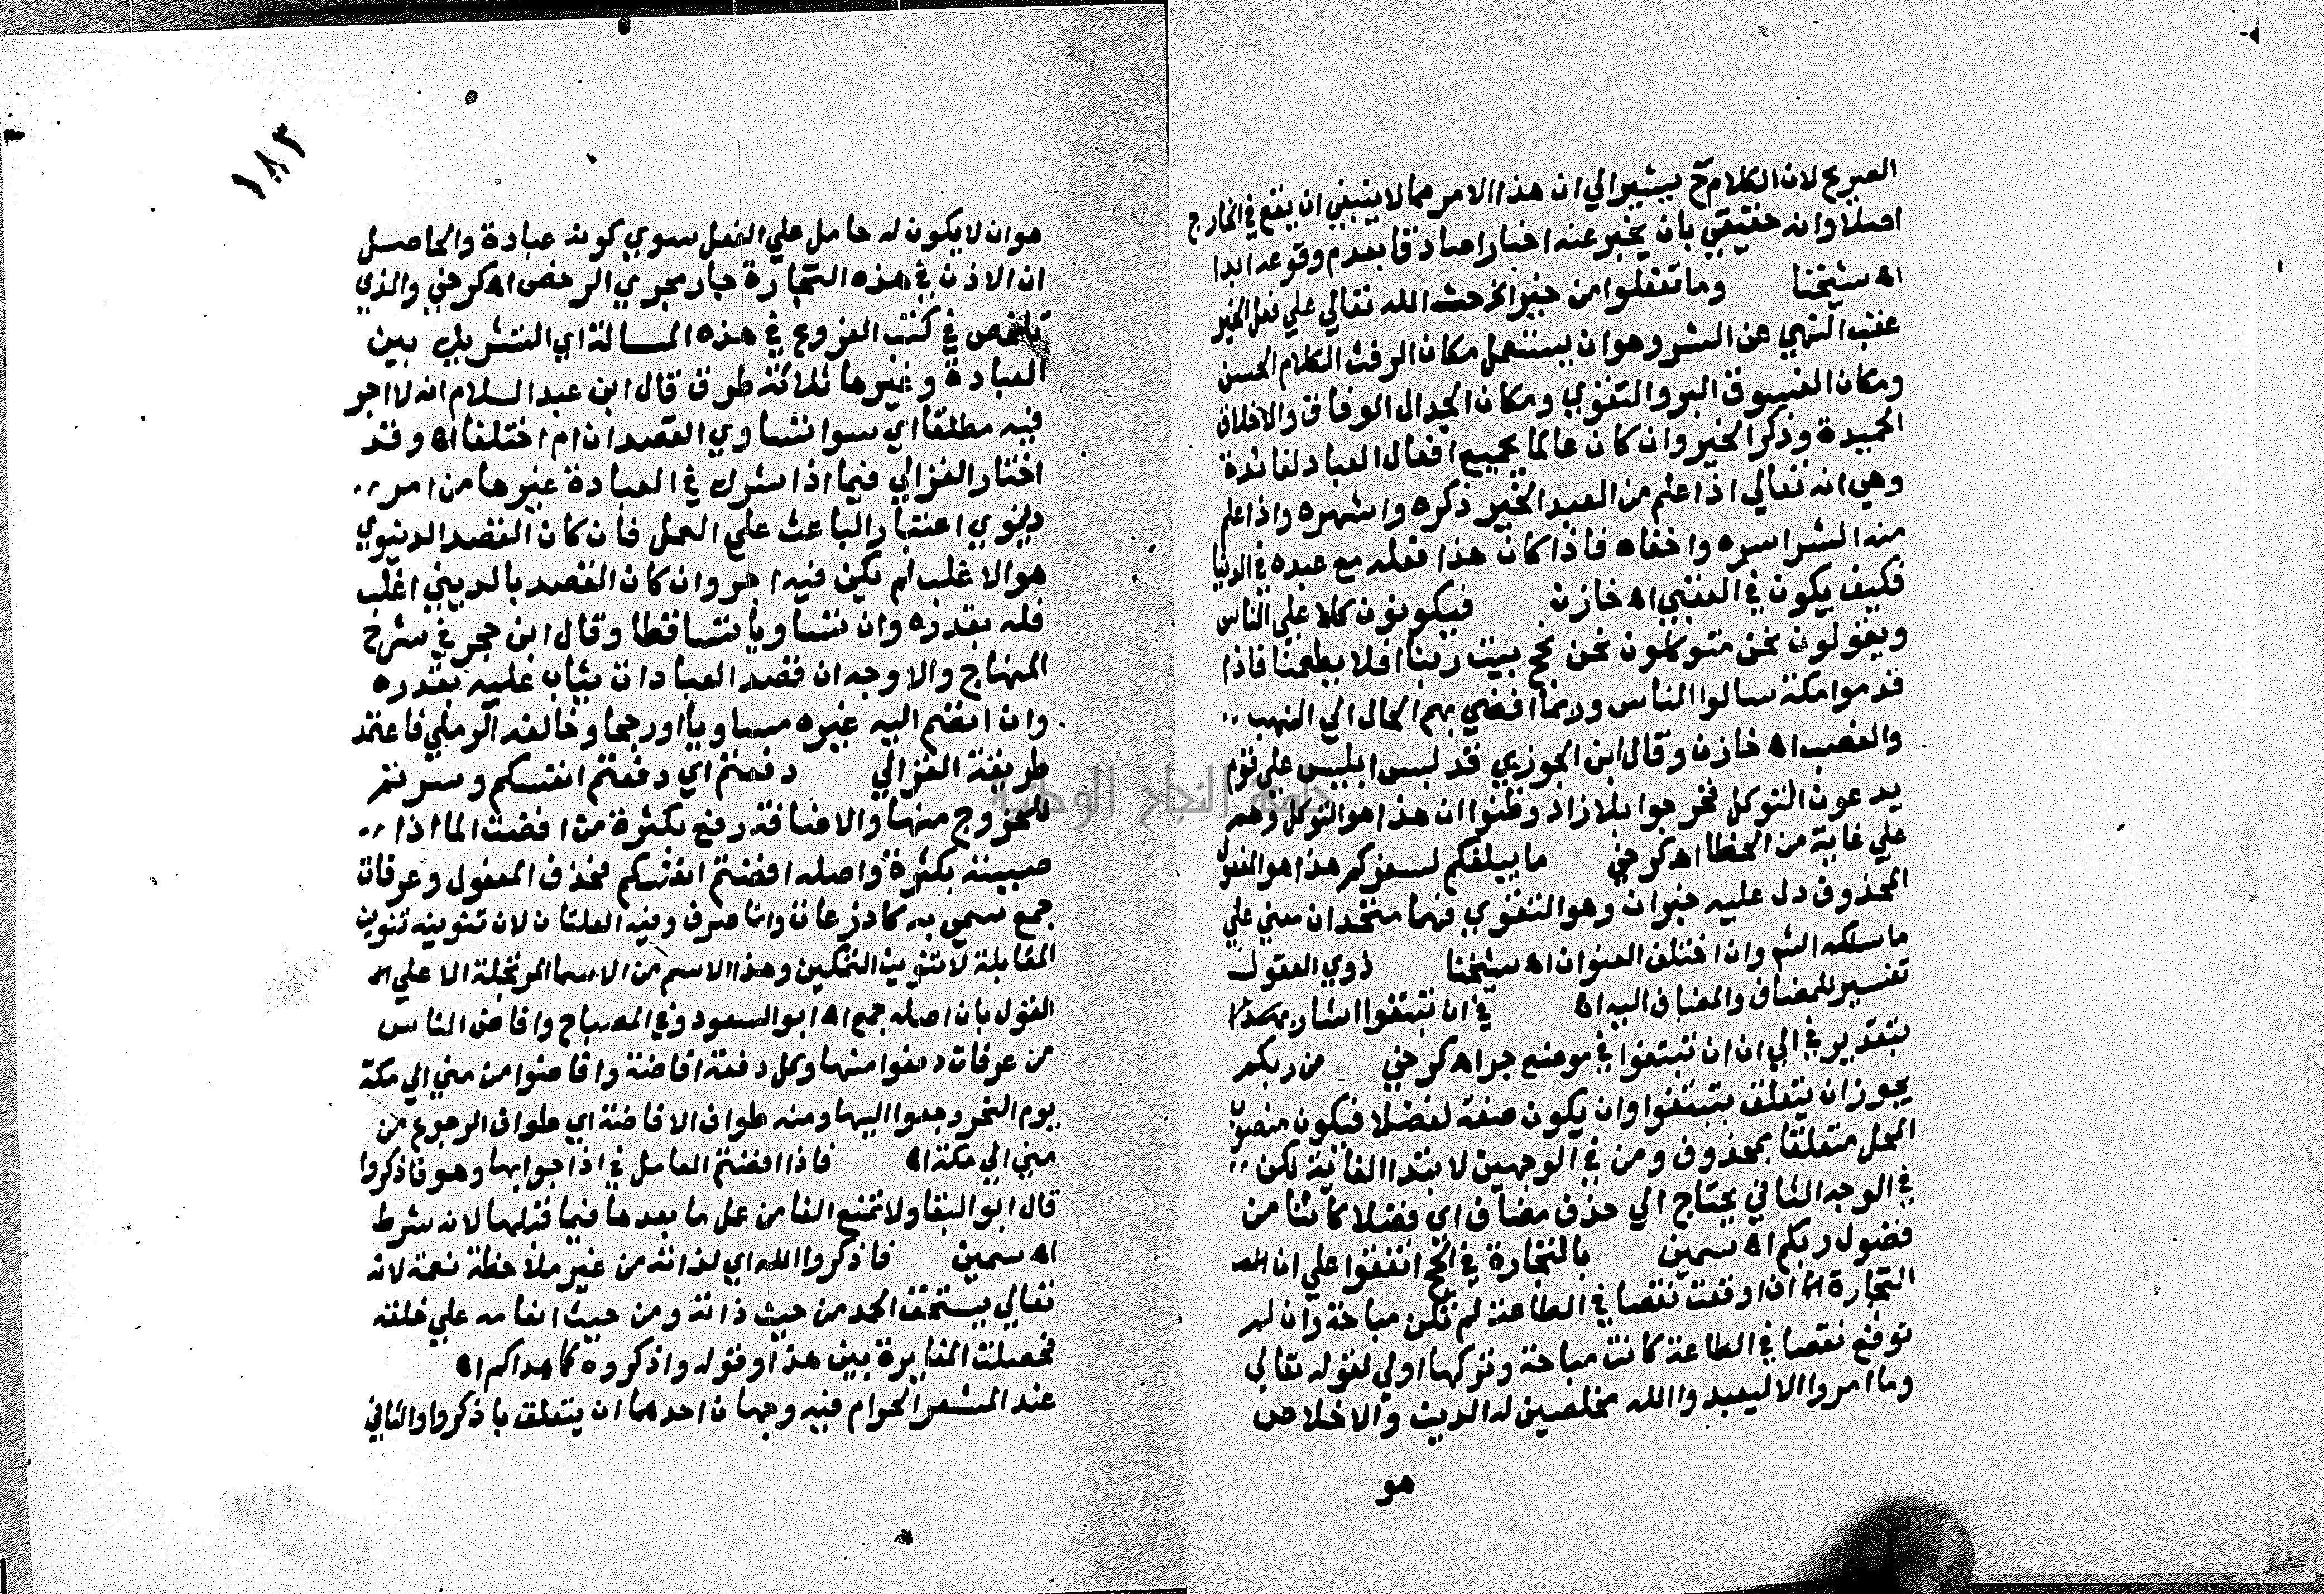 الصريح لان الكلام ح يشير الي ان هذا الامر مما لا ينبغي ان يقع في الخارج
اصلا وانه حقيقي بان يخبر عنه اخبارا صادقا بعدم وقوعه ابدا
اه شيخنا وما تفعلوا من خير الخ حث الله تعالي علي فعل الخير
عقب النهي عن الشر وهو ان يستعمل مكان الرفث الكلام الحسن
ومكان الفسوق البر والتقوي ومكان الجدال الوفاق والاخلاق
الحميدة وذكر الخير وان كان عالما بجميع افعال العباد لفائدة
وهي انه تعالي اذا علم من العبد الخير ذكره واشهره واذا علم
منه الشر اسره واخفاه فاذا كان هذا فعله مع عبده في الدنيا
فكيف يكون في العقبي اه خازن فيكونون كلا علي الناس
ويقولون نحن متوكلون نحن نحج بيت ربنا افلا يطعمنا فاذا
قدموا مكة سالوا الناس وربما افضي بهم الحال الي النهب
والغصب اه خازن وقال ابن الجوزي قد لبس ابليس علي قوم
يدعون التوكل فخرجوا بلا زاد وظنوا ان هذا هو التوكل وهم
علي غاية من الخطا اه كرخي ما يبلغكم لسفركم هذا هو المفعول
المحذوف دل عليه خبر ان وهو التقوي فهما متحدان معني علي
ما سلكه الشم وان اختلف العنوان اه شيخنا ذوي العقول
تفسير للمضاف والمضاف اليه اه في ان تبتغوا اشار بهذا
بتقدير في الي ان ان تبتغوا في موضع جر اه كرخي من ربكم
يجوز ان يتعلق بتبتغوا وان يكون صفة لفضلا فيكون منصوب
المحل متعلقا بمحذوف ومن في الوجهين لابتدا الغاية لكن
في الوجه الثاني يحتاج الي حذف مضاف اي فضلا كائنا من
فضول ربكم اه سمين بالتجارة في الحج اتفقوا علي ان
التجارة ان اوقعت نقصا في الطاعة لم تكن مباحة وان لم
توقع نقصا في الطاعة كانت مباحة وتركها اولي لقوله تعالي
وما امروا الا ليعبدوا الله مخلصين له الدين والاخلاص
هو
١٨٣
هو ان لا يكون له حامل علي الفعل سوي كونه عبادة والحاصل
ان الاذن في هذه التجارة جار مجري الرخص اه كرخي والذي
تلخص في كتب الفروع في هذه المسالة اي التشريك بين
العبادة وغيرها ثلاثة طرق قال ابن عبد السلام انه لا اجر
فيه مطلقا اي سوا تساوي القصدان ام اختلفا اه وقد
اختار الغزالي فيما اذا شرك في العبادة غيرها من امر
دنيوي اعتبار الباعث علي العمل فان كان القصد الدنيوي
هو الاغلب لم يكن فيه اجر وان كان القصد بالديني اغلب
فله بقدره وان تساويا تساقطا وقال ابن حجر في شرح
المنهاج والاوجه ان قصد العبادة يثاب عليه بقدره
وان انضم اليه غيره مساويا او راجحا وخالفه الرملي فاعتمد
طريقة الغزالي دفعتم اي دفعتم انفسكم وسرتم
للخروج منها والافاضة رفع بكثرة من افضت الما اذا
صببته بكثرة واصله افضتم انفسكم فحذف المفعول وعرفات
جمع سمي به كاذرعات وانما صرف وفيه العلتان لان تنوينه تنوين
المقابلة لا تنوين التمكين وهذا الاسم من الاسما المرتجلة الا علي
القول بان اصله جمع اه ابو السعود وفي المصباح وافاض الناس
من عرفات دفعوا منها وكل دفعة افاضة وافاضوا من مني الي مكة
يوم النحر رجعوا اليها ومنه طواف الافاضة اي طواف الرجوع من
مني الي مكة اه فاذا افضتم العامل في اذا جوابها وهو فاذكروا
قال ابو البقا ولا تمنع الفا من عمل ما بعدها فيما قبلها لانه شرط
اه سمين فاذكروا الله اي لذاته من غير ملاحظة نعمة لانه
تعالي يستحق الحمد من حيث ذاته ومن حيث انعامه علي خلقه
فحصلت المغايرة بين هذا وقوله واذكروه كما هداكم اه
عند المشعر الحرام فيه وجهان احدهما ان يتعلق باذكروا والثاني
جامعة النجاح الوطنية